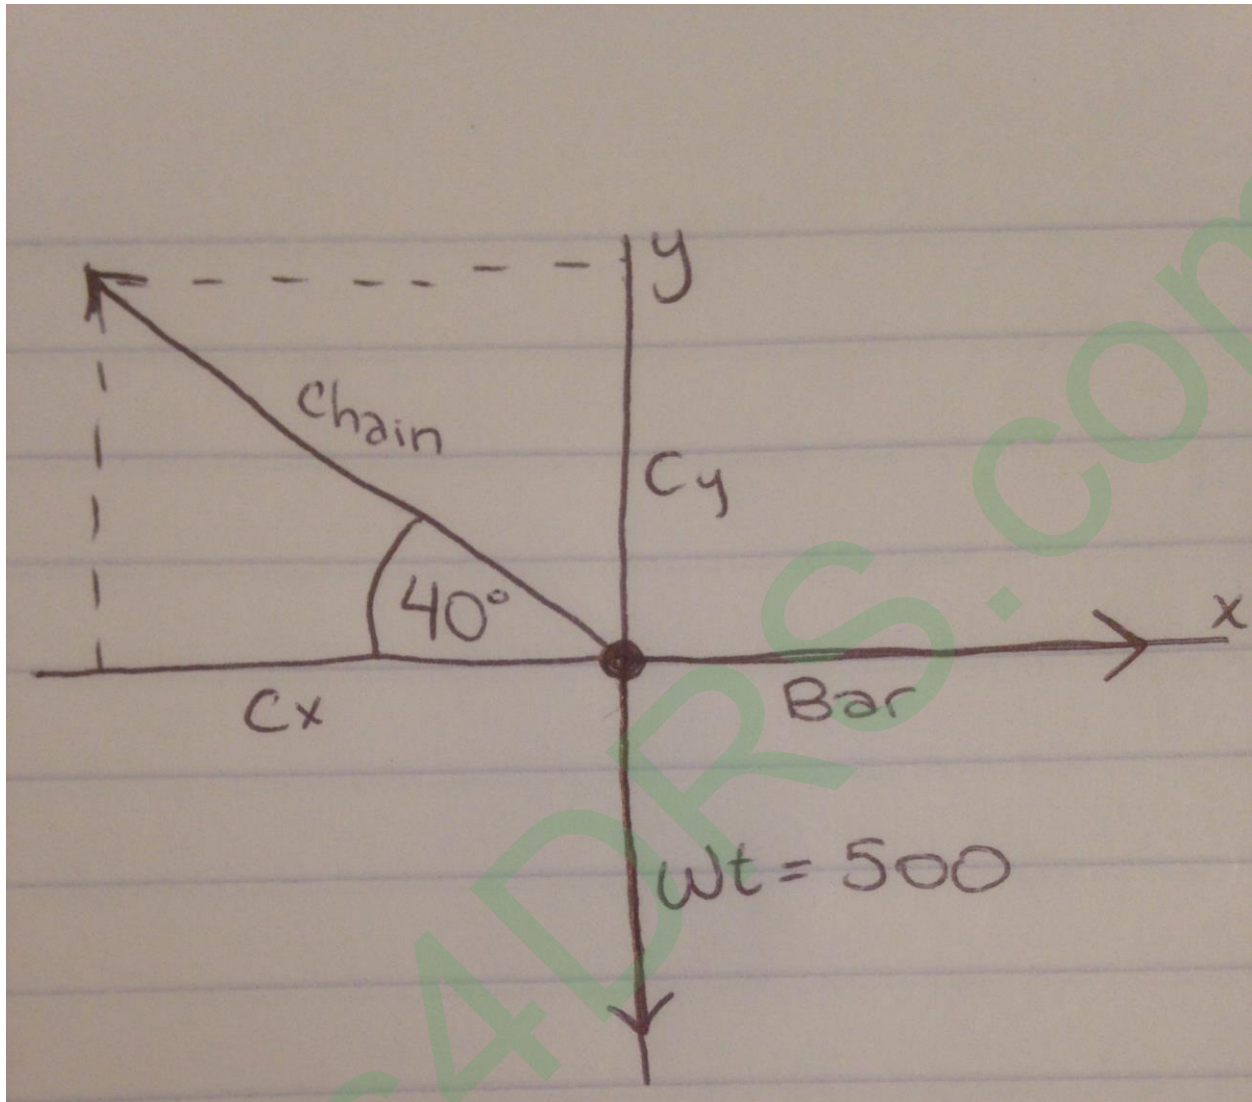 y
Chain
Cy
40°
x
Cx
Bar
Wt = 500
4DRS.com